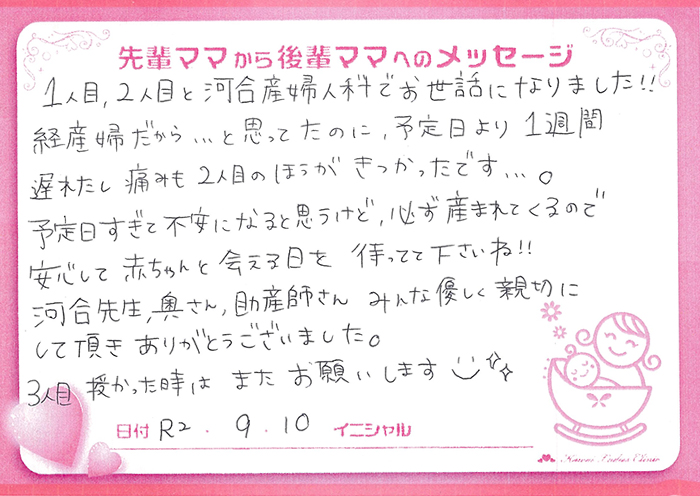 先輩ママから後輩ママへのメッセージ
1人目,2人目と河合産婦人科でお世話になりました!!
経産婦だから…と思ってたのに,予定日より1週間
遅れたし痛みも2人目のほうがきつかったです…。
予定日すぎて不安になると思うけど,必ず産まれてくるので
安心して赤ちゃんと会える日を待ってて下さいね!!
河合先生,奥さん,助産師さんみんな優しく親切に
して頂きありがとうございました。
3人目授かった時はまたお願いします
日付 R2・9・10 イニシャル
Kawai Ladies Clinic